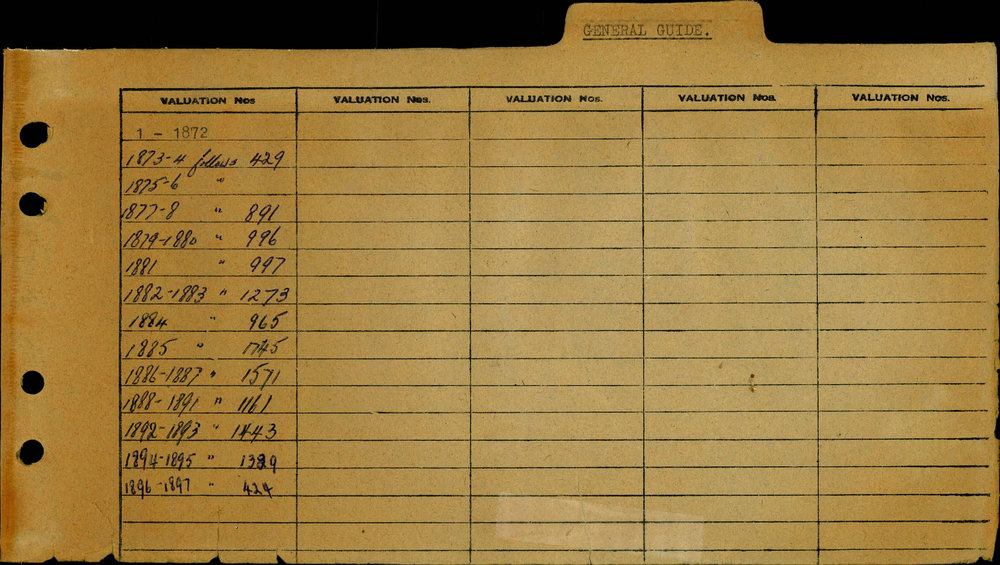 GENERAL GUIDE.
VALUATION Nos VALUATION Nos. VALUATION Nos. VALUATION Nos. VALUATION Nos.
1 - 1872
1873-4 follows 429
1875-6 "
1877-8 " 891
1879-1880 " 996
1881 " 997
1882-1883 " 1273
1884 " 965
1885 " 1745
1886-1887 " 1571
1888-1891 " 1161
1892-1893 " 1443
1894-1895 "
1896-1897 " 424